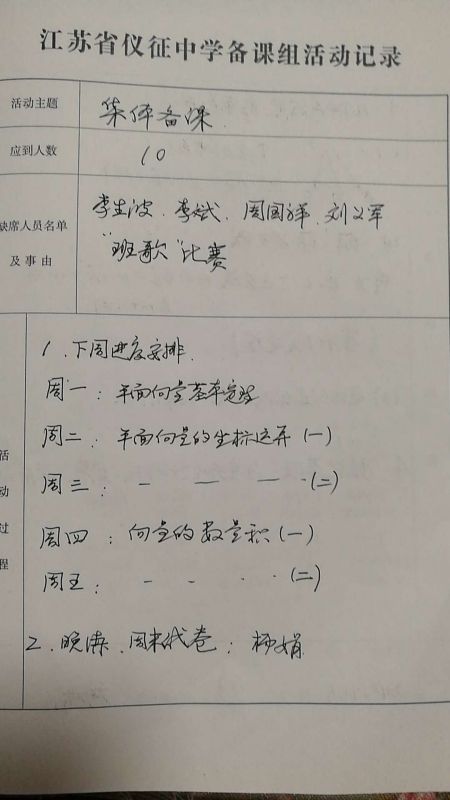 江苏省仪征中学备课组活动记录
活动主题 集体备课.
应到人数 10
缺席人员名单 李生波.李斌.周国祥.刘义军
及事由 "班歌"比赛
活动过程
1.下周进度安排.
周一:平面向量基本定理
周二:平面向量的坐标运算(一)
周三:— — — ·(二)
周四:向量的数量积(一)
周五:- - · ·(二)
2.晚讲.周末试卷:杨娟